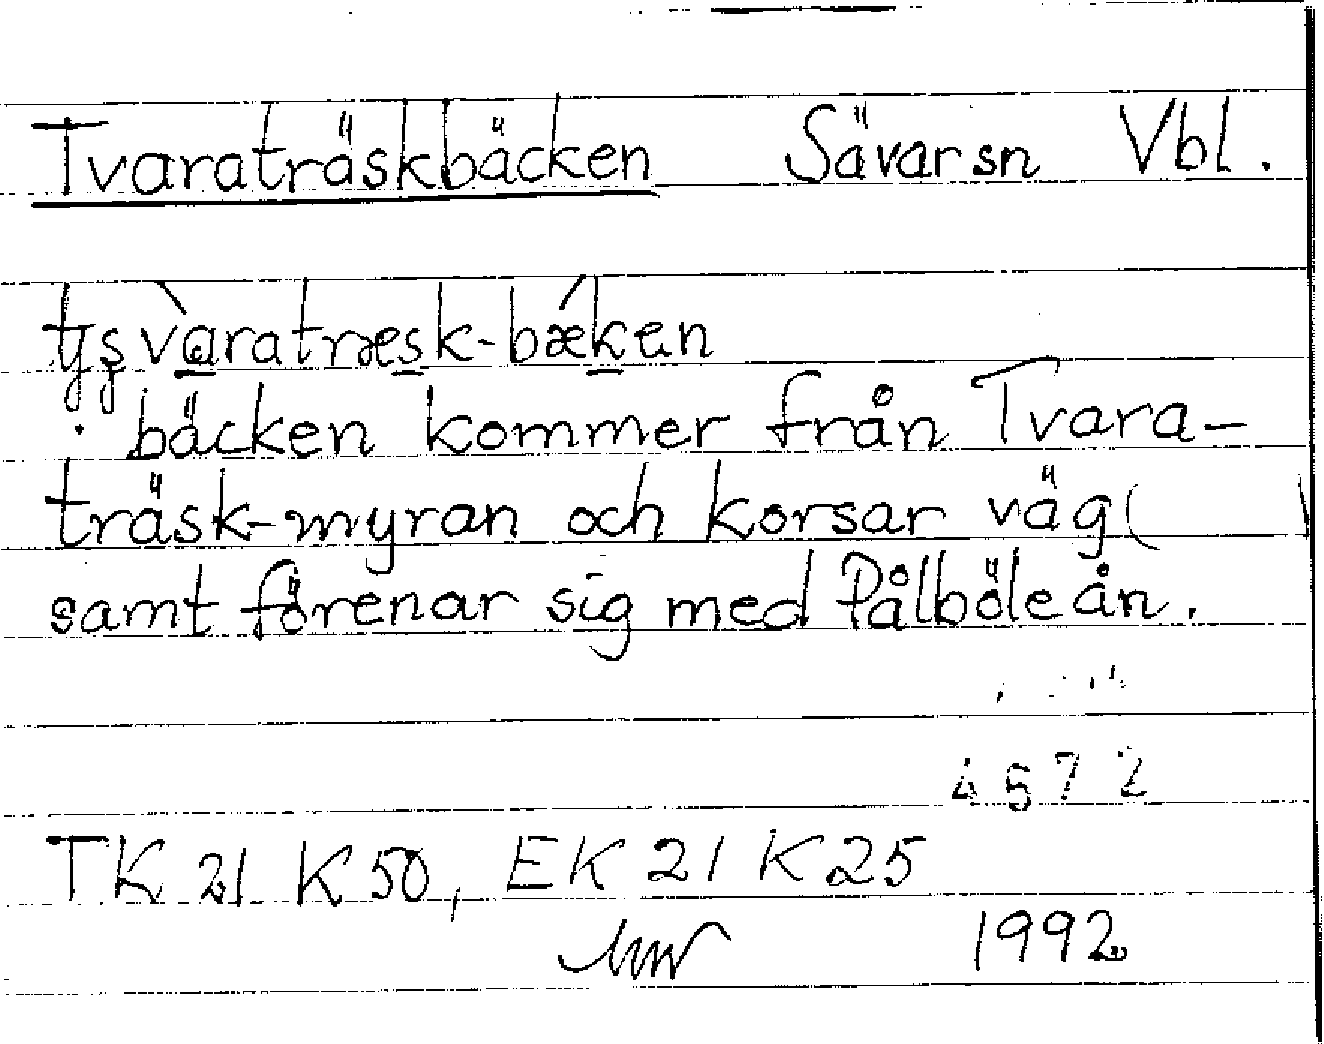 Tvaraträskbäcken Sävar sn Vbl.
tjşvàratræsk-bǽkan
bäcken kommer från Tvara-
träsk-myran och korsar väg (
samt förenar sig med Pålböleån.
4672
TK 21 K 50, EK 21 K 25
1992